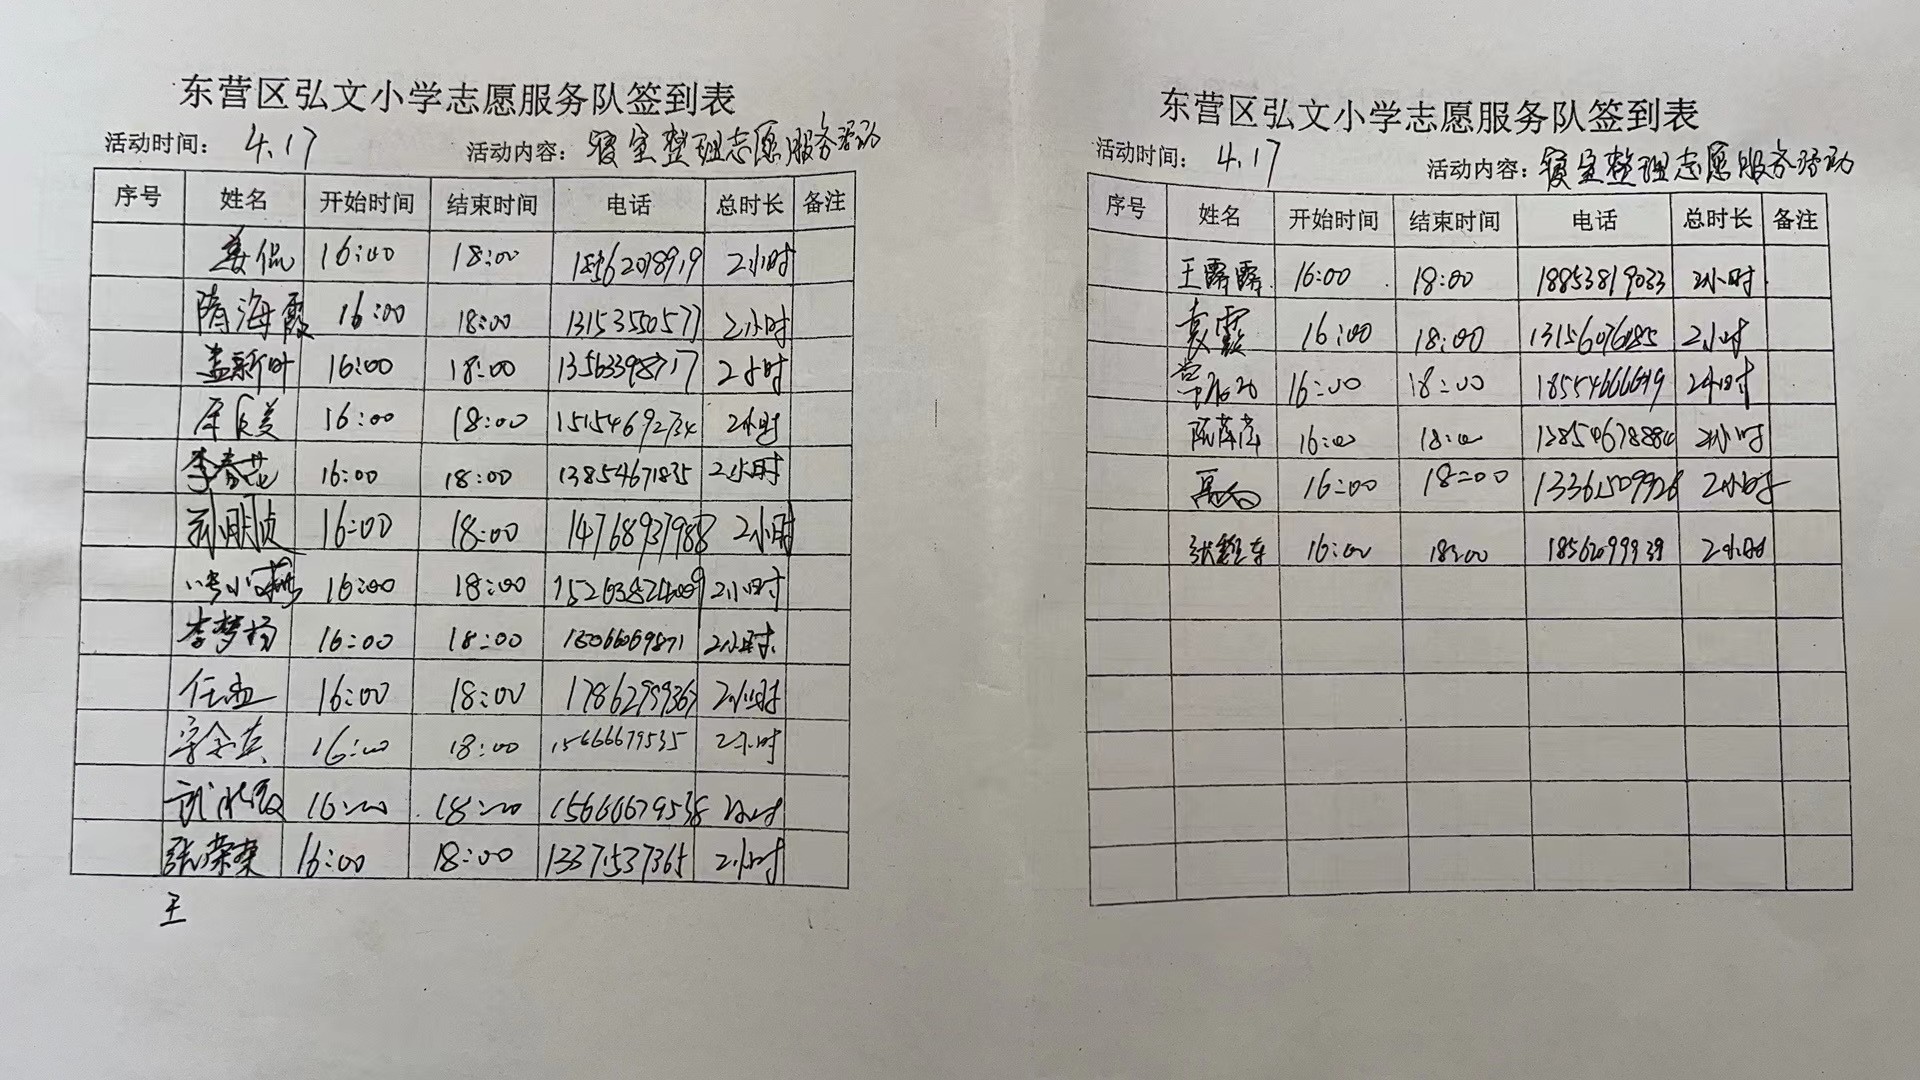 东营区弘文小学志愿服务队签到表
活动时间： 4.17 活动内容：寝室整理志愿服务活动
序号 姓名 开始时间 结束时间 电话 总时长 备注
姜侃 16:00 18:00 2小时
隋海霞 16:00 18:00 13153550577 2小时
孟新叶 16:00 18:00 13563398717 2小时
16:00 18:00 15154692734 2小时
李春花 16:00 18:00 13854671835 2小时
16:00 18:00 14768937988 2小时
16:00 18:00 2小时
李梦杨 16:00 18:00 2小时
任 16:00 18:00 17862959367 2小时
16:00 18:00 15666679535 2小时
16:00 18:00 15666679538 2小时
张荣荣 16:00 18:00 13371537365 2小时
王
东营区弘文小学志愿服务队签到表
活动时间： 4.17 活动内容：寝室整理志愿服务活动
序号 姓名 开始时间 结束时间 电话 总时长 备注
王露露 16:00 18:00 18853819033 2小时
袁霞 16:00 18:00 2小时
16:00 18:00 18554666619 2小时
16:00 18:00 2小时
16:00 18:00 13361509926 2小时
16:00 18:00 2小时